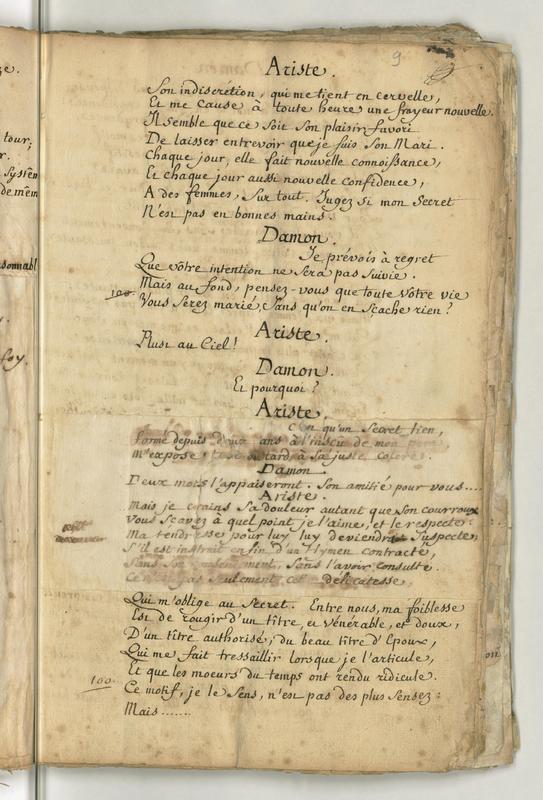 9
Ariste.
Son indiscrétion, qui me tient en cervelle,
Et me cause à toute heure une frayeur nouvelle.
Il semble que ce soit son plaisir favori
De laisser entrevoir que je suis son Mari.
Chaque jour, elle fait nouvelle connoissance,
Et chaque jour aussi nouvelle confidence,
A des femmes, sur tout. Jugez si mon Secret
N'est pas en bonnes mains.
Damon.
Je prévois à regret
Que votre intention ne sera pas suivie.
Mais au fond, pensez-vous que toute votre vie
100
Vous serez marié, sans qu'on en sçache rien?
Ariste.
Plust au Ciel!
Damon.
Et pourquoi?
Ariste.
C'est qu'un Secret lien,
formé depuis deux ans à l'insceu de mon pere,
M'expose, tost ou tard, à sa juste colere.
Damon.
Deux mots l'appaiseront. Son amitié pour vous....
Ariste.
Mais je crains sa douleur autant que son courroux
Vous sçavez à quel point je l'aime, et le respecte:
Ma tendresse pour luy luy deviendra suspecte,
S'il est instruit enfin d'un Hymen contracté,
Sans son consentement, sans l'avoir consulté.
Ce n'est pas seulement cette délicatesse,
Qui m'oblige au Secret. Entre nous, ma foiblesse
Est de rougir d'un tître, et vénérable, et doux,
D'un tître authorisé, du beau tître d'Epoux,
Qui me fait tressaillir lorsque je l'articule,
Et que les moeurs du temps ont rendu ridicule.
100.
Ce motif, je le sens, n'est pas des plus sensez:
Mais......
ze.
tour;
r.
Systêm
de mêm
sonnabl
foy.
on